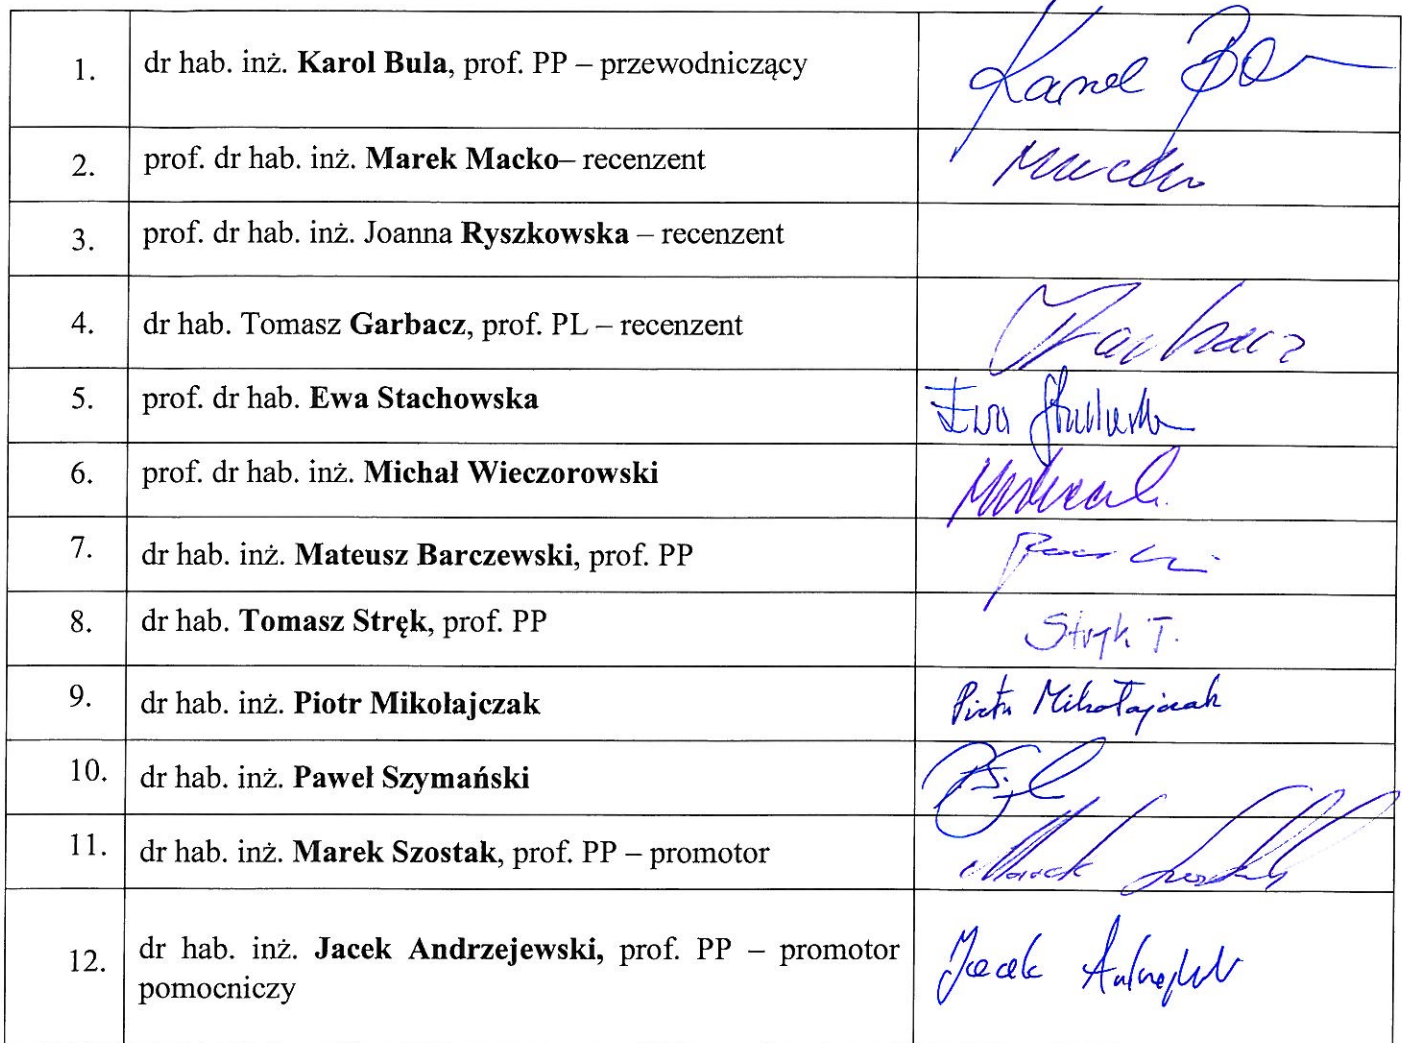 1. dr hab. inż. Karol Bula, prof. PP – przewodniczący Karol
2. prof. dr hab. inż. Marek Macko– recenzent Macko
3. prof. dr hab. inż. Joanna Ryszkowska – recenzent
4. dr hab. Tomasz Garbacz, prof. PL – recenzent Garbacz
5. prof. dr hab. Ewa Stachowska Ewa
6. prof. dr hab. inż. Michał Wieczorowski
7. dr hab. inż. Mateusz Barczewski, prof. PP
8. dr hab. Tomasz Stręk, prof. PP Stręk T.
9. dr hab. inż. Piotr Mikołajczak Piotr Mikołajczak
10. dr hab. inż. Paweł Szymański
11. dr hab. inż. Marek Szostak, prof. PP – promotor Marek
12. dr hab. inż. Jacek Andrzejewski, prof. PP – promotor
pomocniczy Jacek